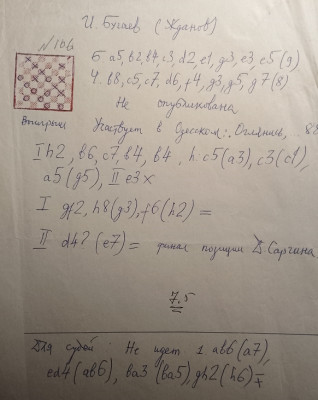 И. Бугаев (Жданов)
№ 106
Б. a5, b2, b4, c3, d2, e1, g3, e3, e5 (9)
Ч. b8, c5, c7, d6, f4, g3, g5, g7 (8)
Не опубликована
Выигрыш Участвует в Одесском:
I h2, b6, c7, b4, b4, h: c5 (a3), c3 (c1),
a5 (g5), II e3 ×
I gf2, h8 (g3), f6 (h2) =
II d4? (e7) = финал позиции Саргина
7.5
Для судьи: Не идет 1 ab6 (a7),
ed4 (ab6), ba3 (ba5), gh2 (h6)